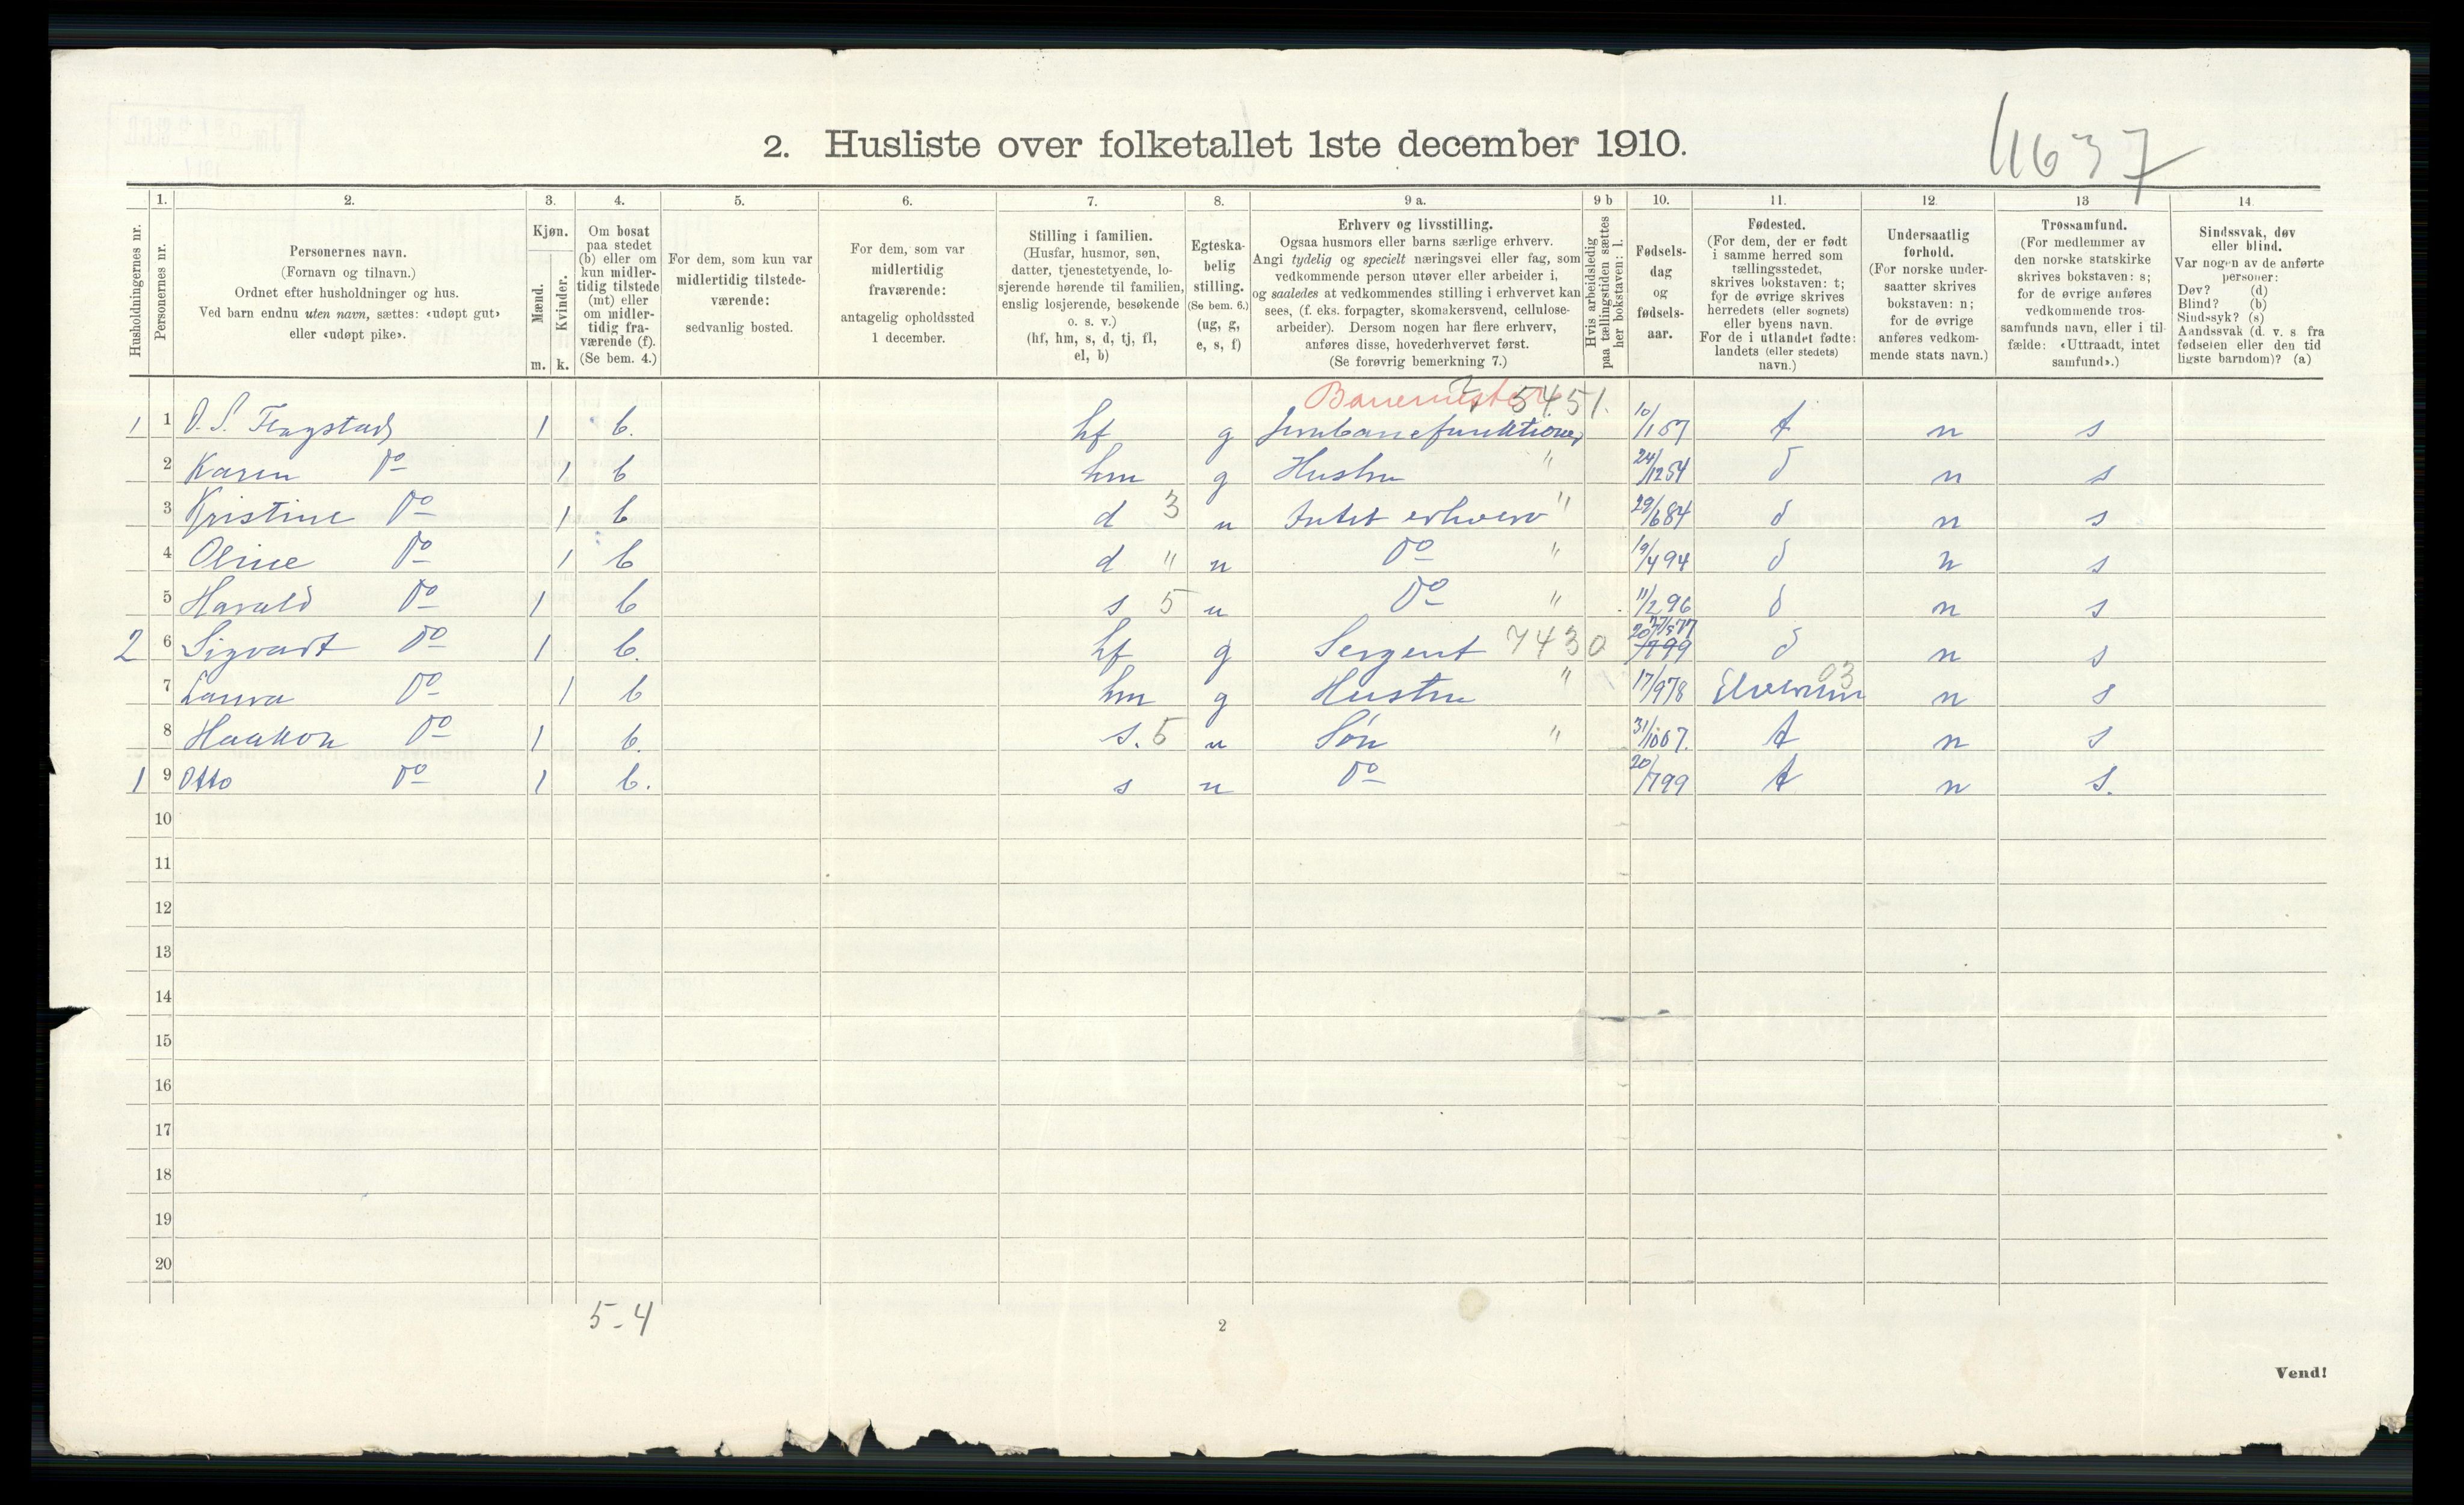 2. Husliste over folketallet 1ste december 1910.
11637
1. 2. 3. 4. 5. 6. 7. 8. 9 a. 9 b 10. 11. 12. 13 14.
Husholdningernes nr.
Personernes nr.
Personernes navn.
(Fornavn og tilnavn.)
Ordnet efter husholdninger og hus.
Ved barn endnu uten navn, sættes: «udøpt gut»
eller «udøpt pike».
Kjøn.
Mænd.
Kvinder.
m. k.
Om bosat
paa stedet
(b) eller om
kun midler-
tidig tilstede
(mt) eller
om midler-
tidig fra-
værende (f).
(Se bem. 4.)
For dem, som kun var
midlertidig tilstede-
værende:
sedvanlig bosted.
For dem, som var
midlertidig
fraværende:
antagelig opholdssted
1 december.
Stilling i familien.
(Husfar, husmor, søn,
datter, tjenestetyende, lo-
sjerende hørende til familien,
enslig losjerende, besøkende
o. s. v.)
(hf, hm, s, d, tj, fl,
el, b)
Egteska-
belig
stilling.
(Se bem. 6.)
(ug, g,
e, s, f)
Erhverv og livsstilling.
Ogsaa husmors eller barns særlige erhverv.
Angi tydelig og specielt næringsvei eller fag, som
vedkommende person utøver eller arbeider i,
og saaledes at vedkommendes stilling i erhvervet kan
sees, (f. eks. forpagter, skomakersvend, cellulose-
arbeider). Dersom nogen har flere erhverv,
anføres disse, hovederhvervet først.
(Se forøvrig bemerkning 7.)
Hvis arbeidsledig
paa tællingstiden sættes
her bokstaven: l.
Fødsels-
dag
og
fødsels-
aar.
Fødested.
(For dem, der er født
i samme herred som
tællingsstedet,
skrives bokstaven: t;
for de øvrige skrives
herredets (eller sognets)
eller byens navn.
For de i utlandet fødte:
landets (eller stedets)
navn.)
Undersaatlig
forhold.
(For norske under-
saatter skrives
bokstaven: n;
for de øvrige
anføres vedkom-
mende stats navn.)
Trossamfund.
(For medlemmer av
den norske statskirke
skrives bokstaven: s;
for de øvrige anføres
vedkommende tros-
samfunds navn, eller i til-
fælde: «Uttraadt, intet
samfund».)
Sindssvak, døv
eller blind.
Var nogen av de anførte
personer:
Døv? (d)
Blind? (b)
Sindssyk? (s)
Aandssvak (d. v. s. fra
fødselen eller den tid-
ligste barndom)? (a)
Banemester 5451.
1 1 O. S. Flagstad 1 b. hf g Jernbanefunktionær 10/1 57 t n s
2 Karen Do 1 b hm g Hustru " 24/12 54 d n s
3 Kristine Do 1 b d 3 u Intet erhverv " 29/6 84 d n s
4 Oline Do 1 b d " u Do " 19/4 94 d n s
5 Harald Do 1 b s 5 u Do " 11/2 96 d n s
2 6 Sigvart Do 1 b. hf g Sergent 7430 d n s
7 Laura Do 1 b hm g Hustru " 17/9 78 Elverum 03 n s
8 Haakon Do 1 b. s. 5 u Søn " 31/10 07. t n s
1 9 Otto Do 1 b. s u Do 20/7 99 t n s.
10
11
12
13
14
15
16
17
18
19
20
5-4
2
Vend!